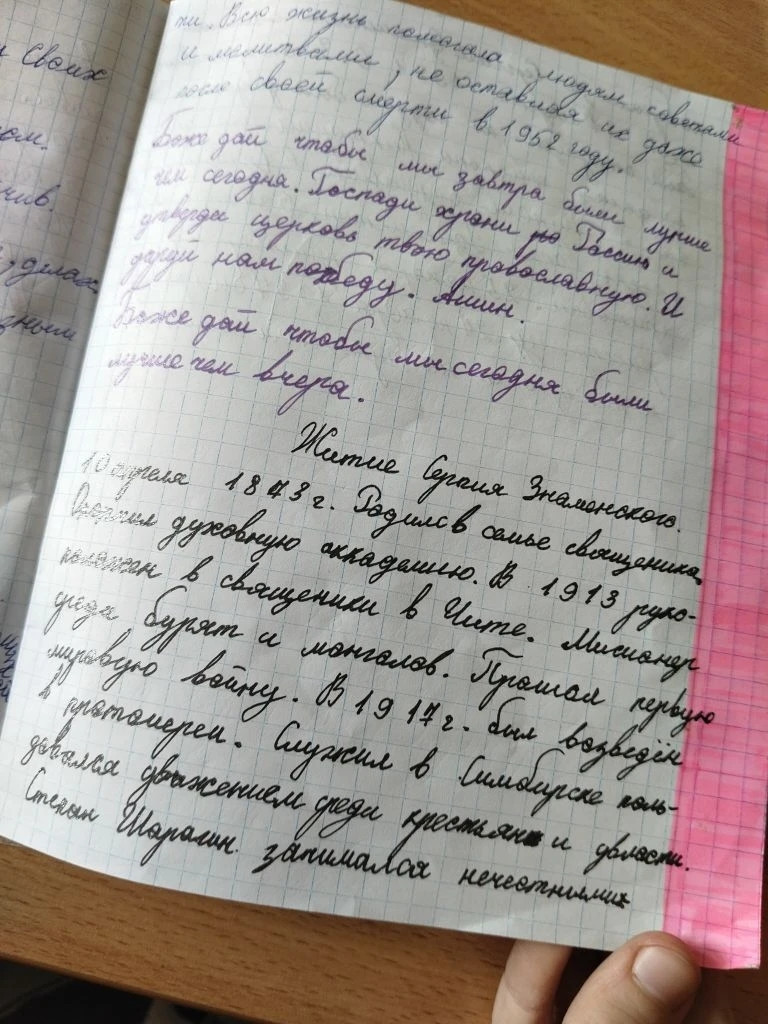 и своих
ти. Всю жизнь помогала людям советами
и молитвами, не оставляя их даже
после своей смерти в 1962 году.
Боже дай чтобы мы завтра были лучше
чем сегодня. Господи храни Россию и
утверди церковь твою православную. И
даруй нам победу. Амин.
Боже дай чтобы мы сегодня были
лучше чем вчера.
Житие Сергия Знаменского.
10 апреля 1873 г. Родилс в семье священика.
Окончил духовную аккадемию. В 1913 руко-
положен в священики в Чите. Мисионер
среди бурят и монголов. Прошол первую
мировую войну. В 1917 г. был возведён
в протоиереи. Служил в Симбирске поль-
довался уважением среди крестьян и власти.
Степан Шарагин занимался нечестными
делах